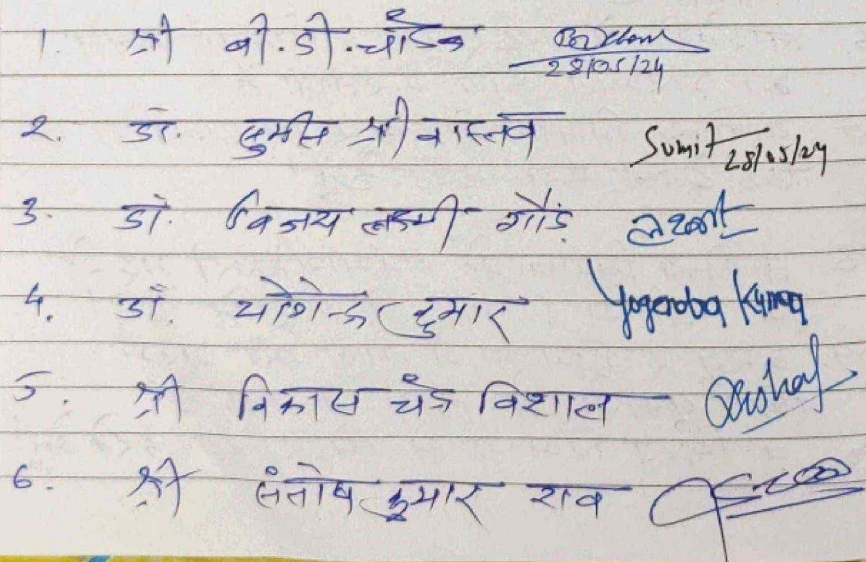 1. श्री बी.डी.
28/05/24
2. डॉ. सुमीत श्रीवास्तव Sumit 28/05/24
3. डॉ. विजय लक्ष्मी गौड़
4. डॉ. योगेन्द्र कुमार Yogendra Kumar
5. श्री विकास चंद्र विशाल
6. श्री संतोष कुमार राव